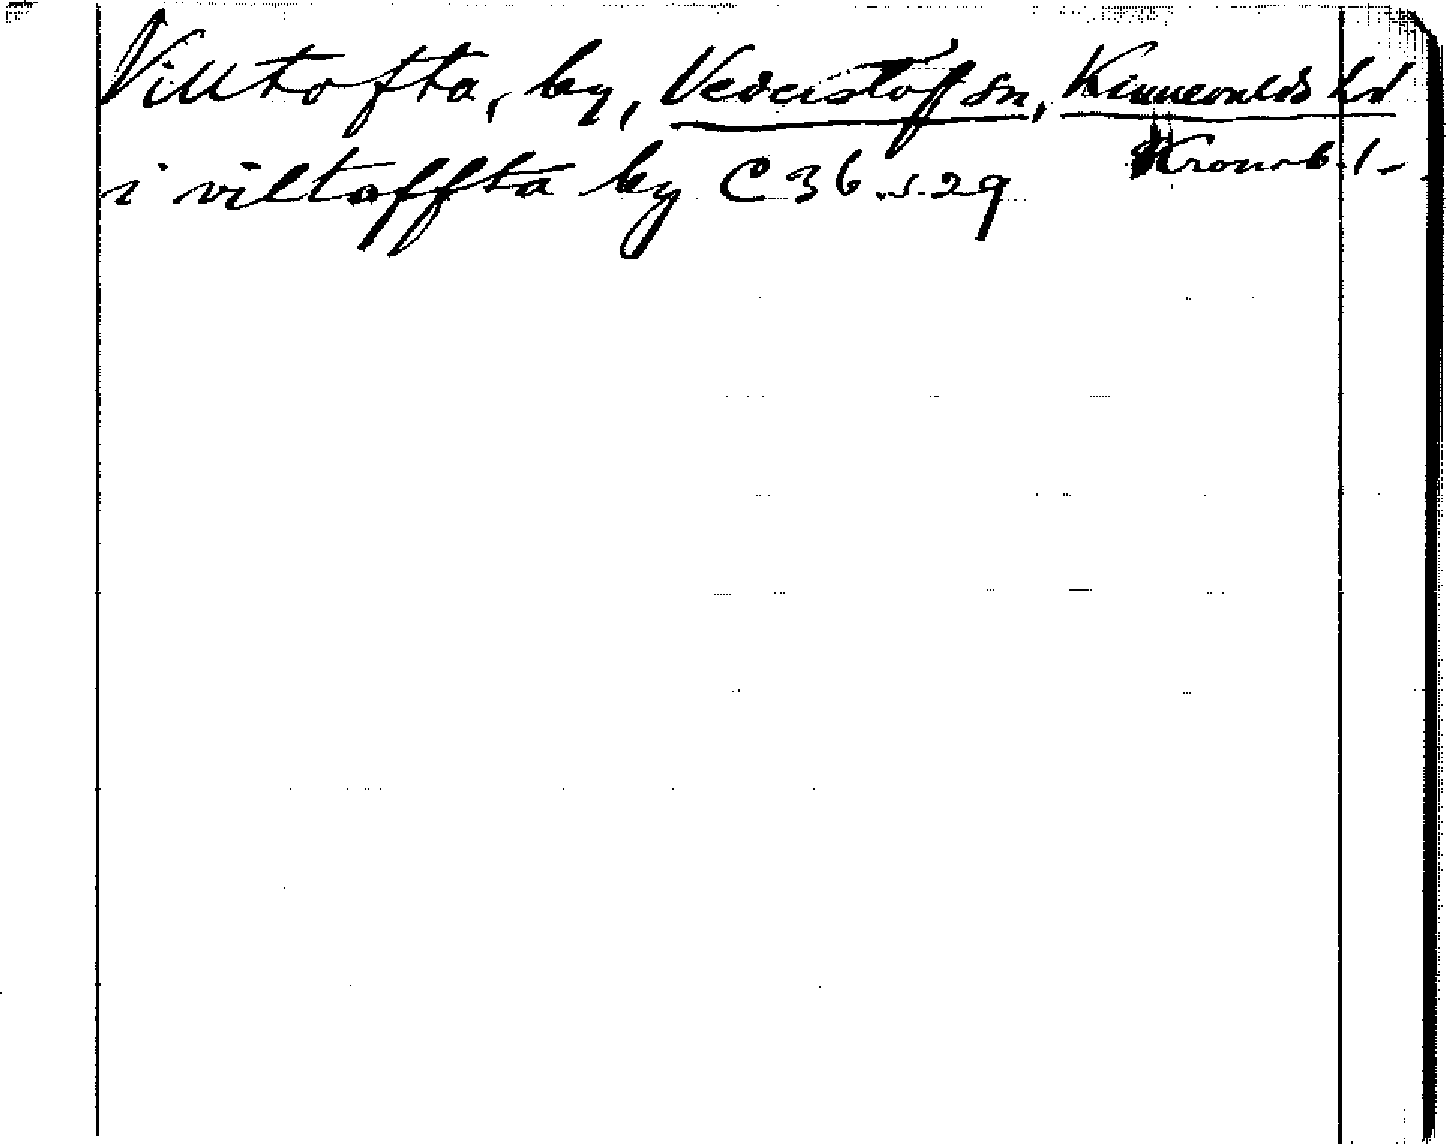 Villtofta, by, Vederslöfs sn, Kinnevalds hd
Kronob. l.
i viltoffta by C 36 s. 29